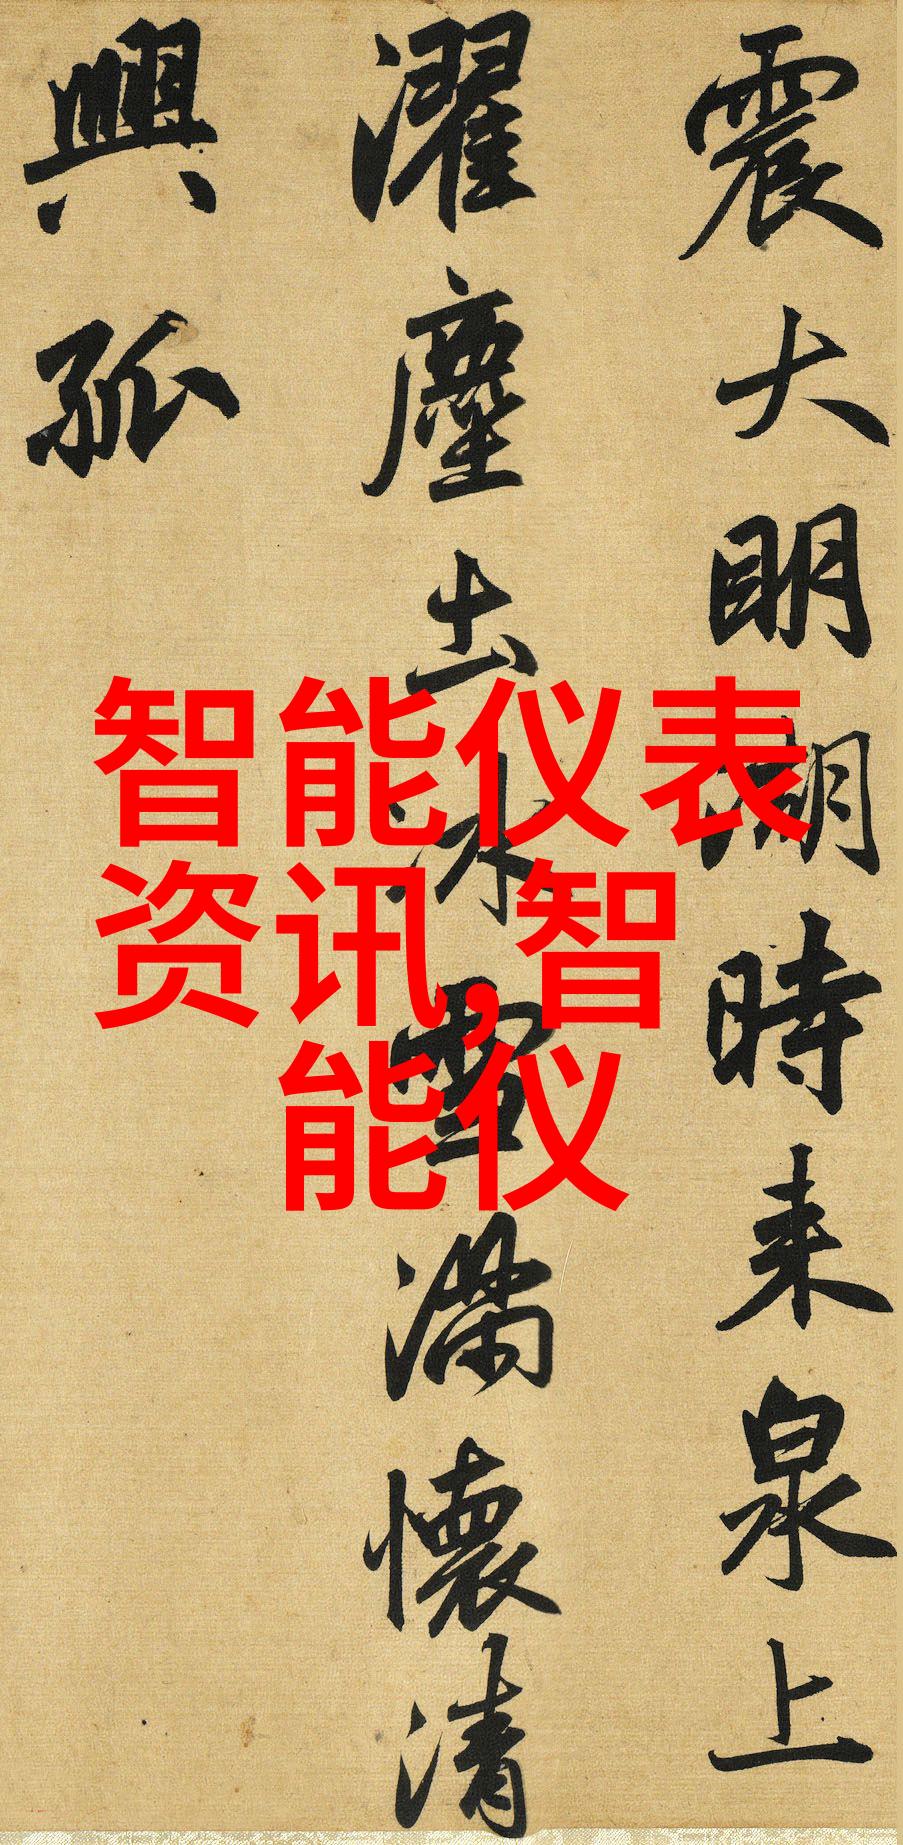 震大明湖時来泉上
濯塵土冰雪滿懷清
興孤
智能仪表
资讯,智
能仪